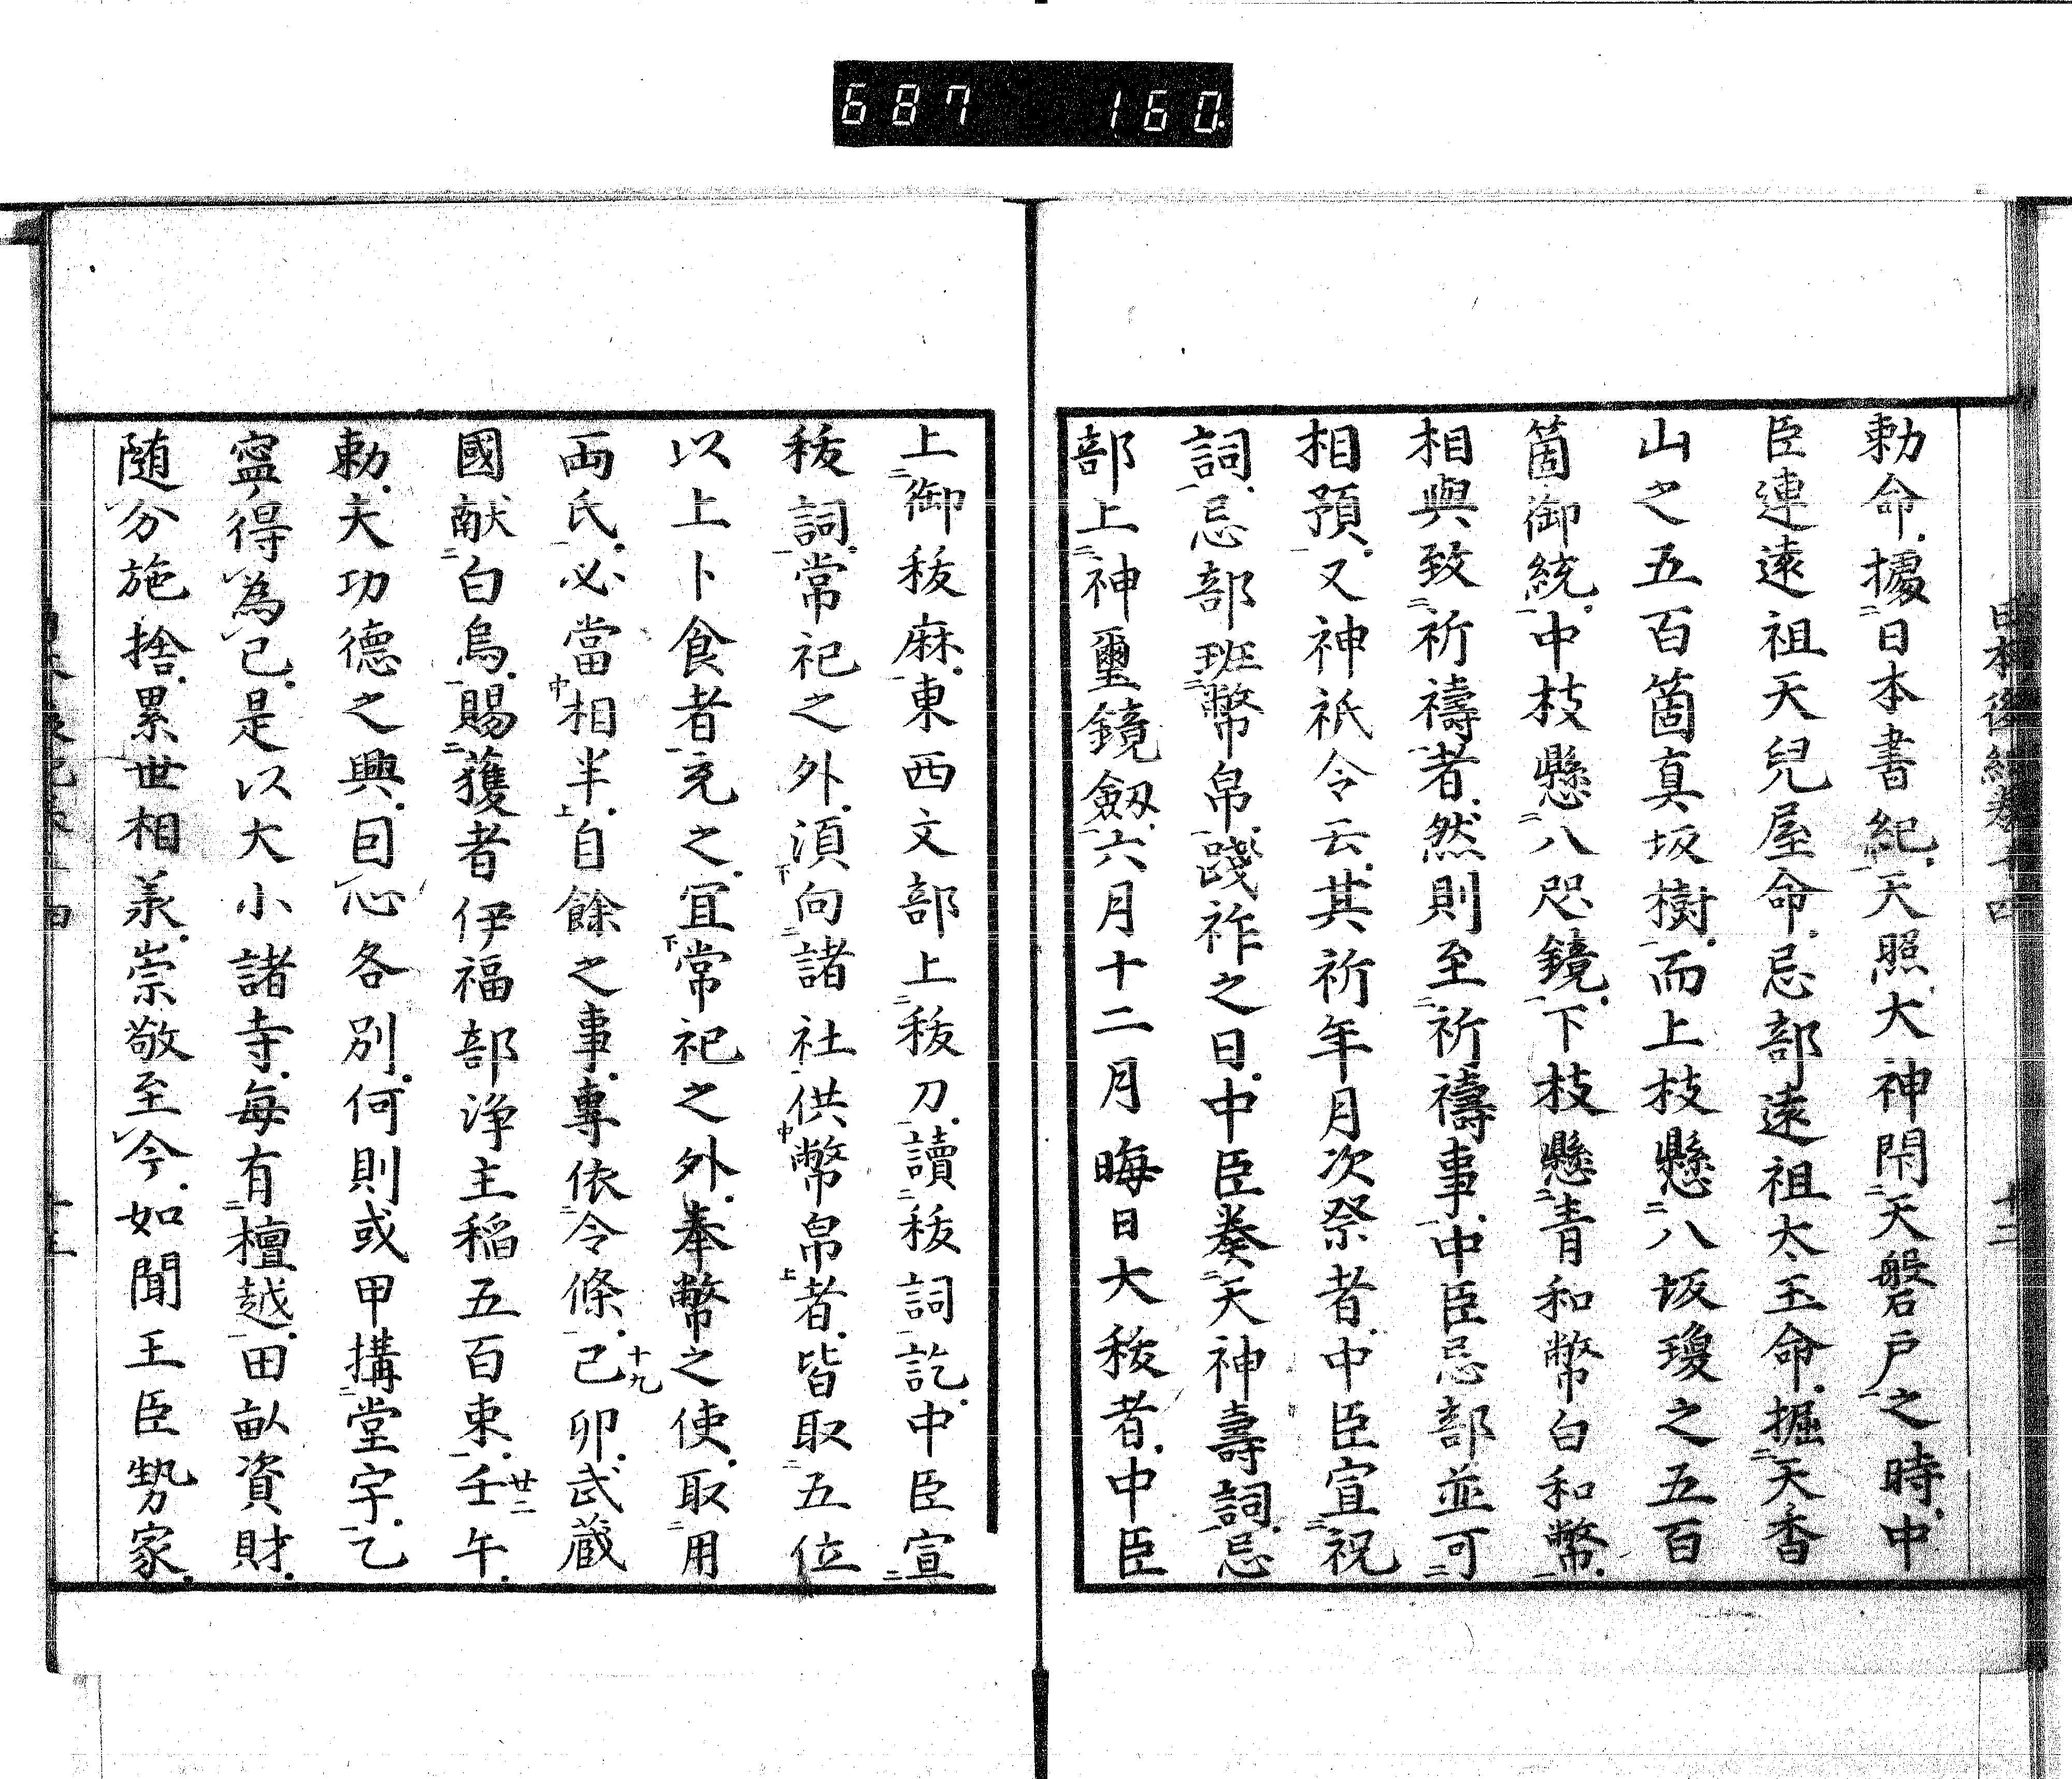 687 160
日本後紀巻十四 十二
勅命據日本書紀天照大神閇天磐戸之時中
臣連遠祖天兒屋命忌部遠祖太玉命掘天香
山之五百箇真坂樹而上枝懸八坂瓊之五百
箇御統中枝懸八咫鏡下枝懸青和幣白和幣
相與致祈禱者然則至祈禱事中臣忌部並可
相預又神祇令云其祈年月次祭者中臣宣祝
詞忌部班幣帛踐祚之日中臣奏天神壽詞忌
部上神璽鏡劔六月十二月晦日大秡者中臣
上御秡麻東西文部上秡刀讀秡詞訖中臣宣
秡詞常祀之外湏向諸社供幣帛者皆取五位
以上卜食者充之宜常祀之外奉幣之使取用
両氏必當相半自餘之事專依令條己卯十九武蔵
國献白烏賜獲者伊福部浄主稲五百束壬午廿二
勅夫功德之興囙心各別何則或甲搆堂宇乙
寧得為己是以大小諸寺每有檀越田畝資財
随分施捨累世相羕崇敬至今如聞王臣勢家